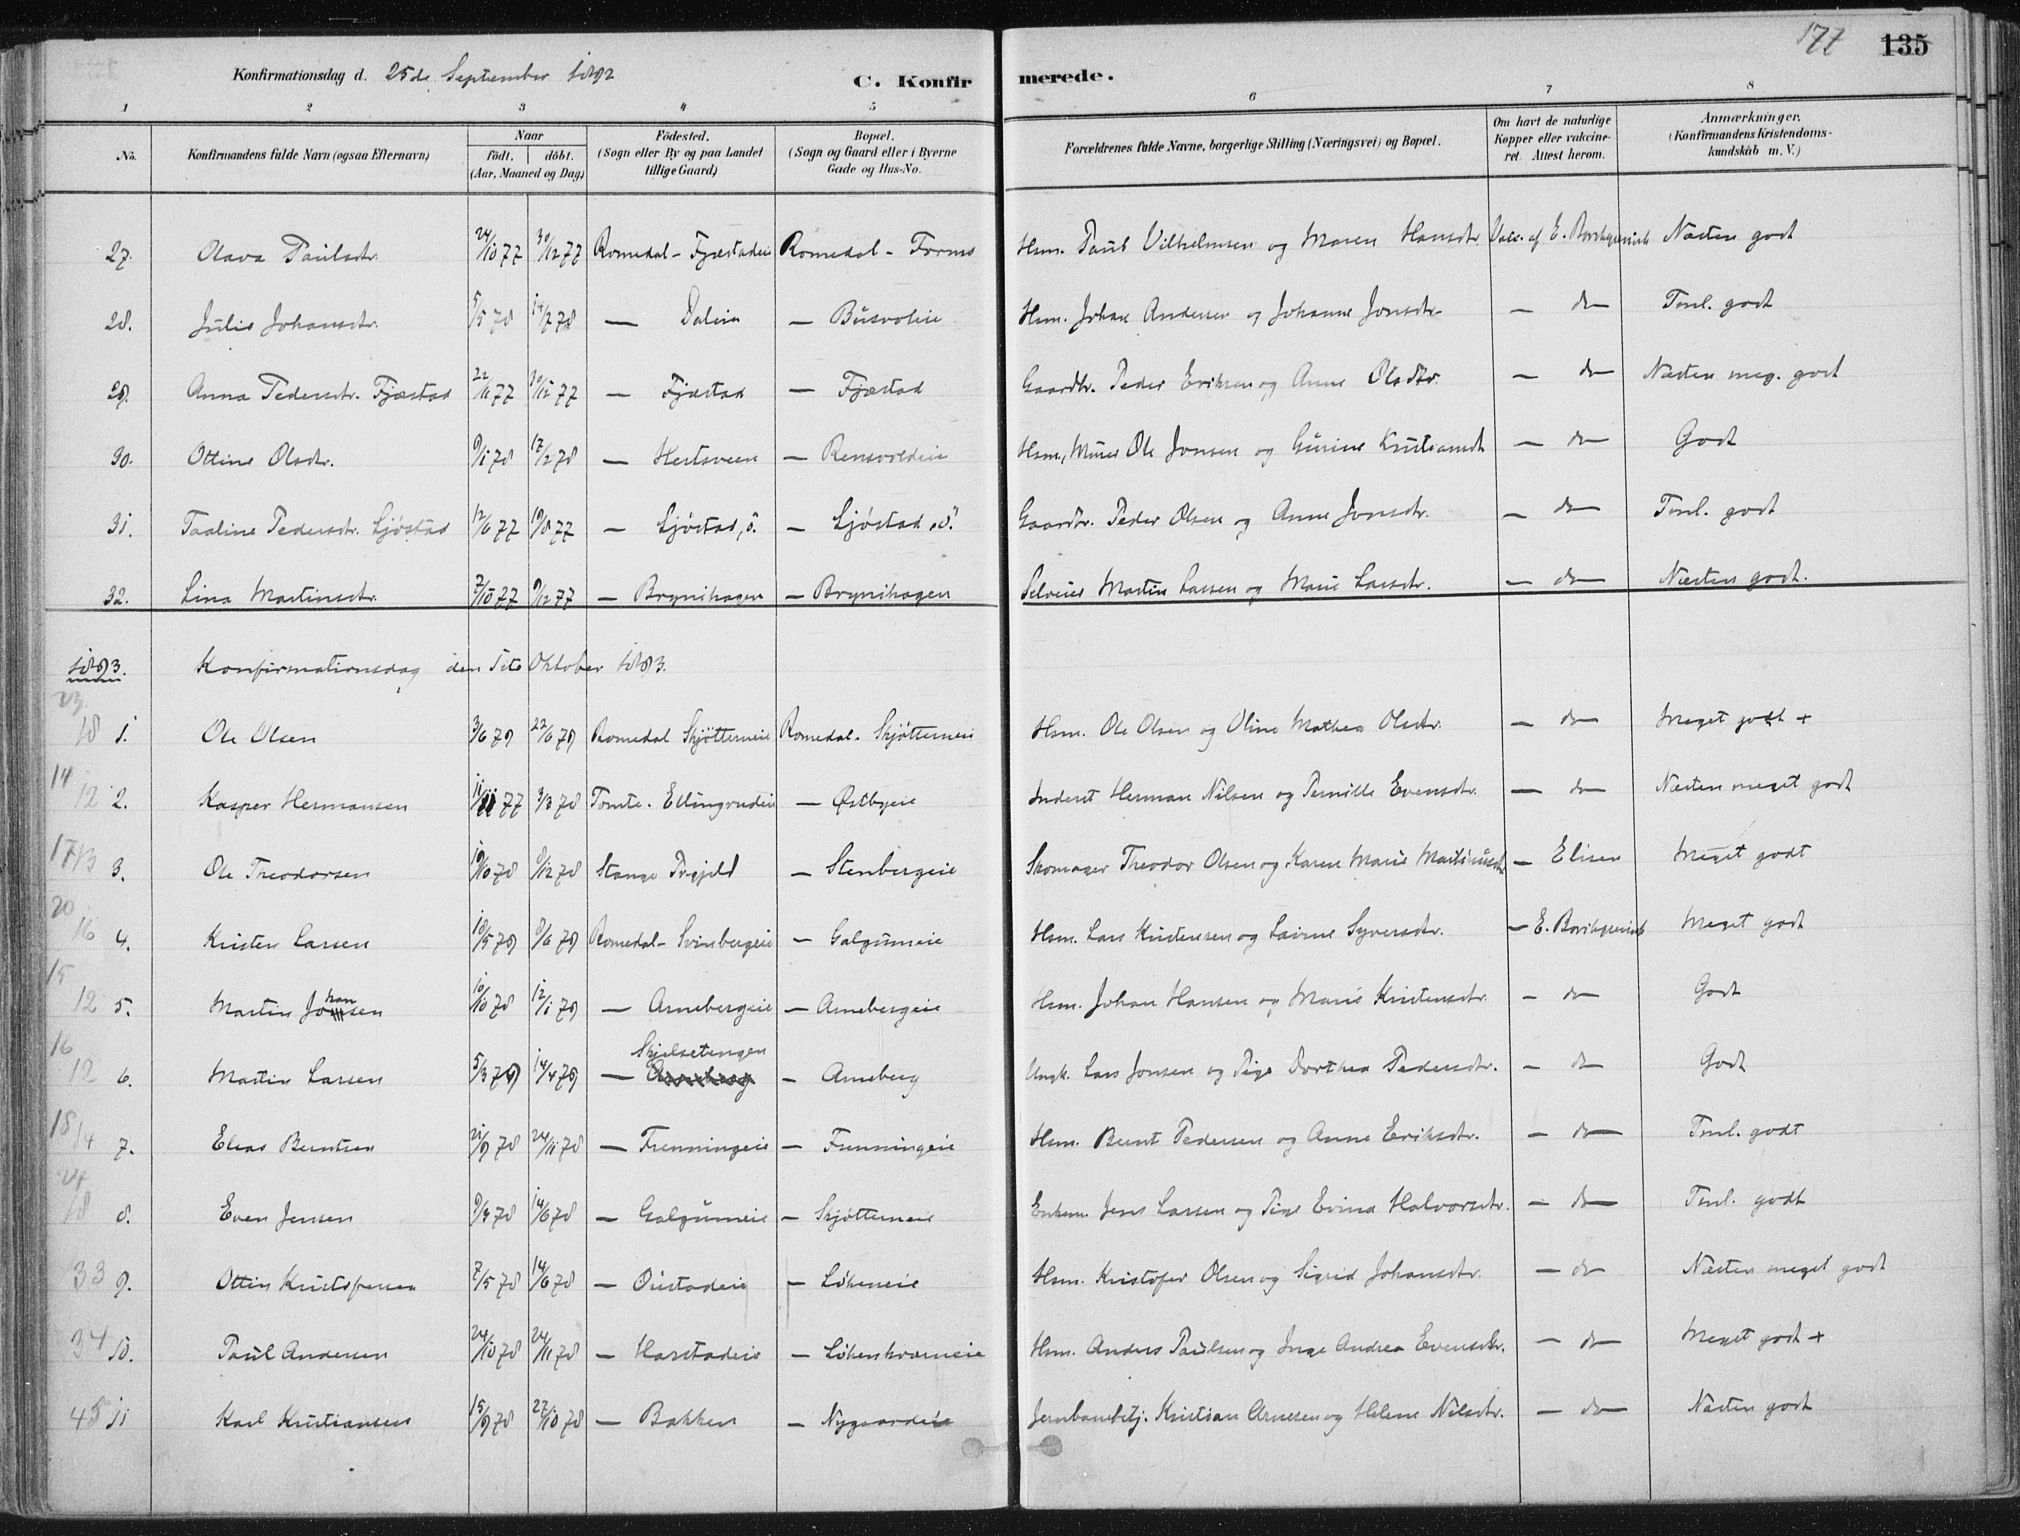 177 135
Konfirmationsdag d. 25de September 1892
C. Konfirmerede.
1 2 3 4 5 6 7 8
No. Konfirmandens fulde Navn (ogsaa Efternavn) Naar födt. döbt. (Aar, Maaned og Dag) Födested. (Sogn eller By og paa Landet tillige Gaard) Bopæl. (Sogn og Gaard eller i Byerne Gade og Hus-No. Forældrenes fulde Navne, borgerlige Stilling (Næringsvei) og Bopæl. Om havt de naturlige Kopper eller vakcineret. Attest herom. Anmærkninger. (Konfirmandens Kristendomskundskab m. V.)
27. Olava Paulsdtr. 24/10 77 30/12 77 Romedal - Fjæstadeie Romedal - Horns Hsm. Paul Vilhelmsen og Maren Hansdtr. Vacc. af E. Næsten godt
28. Julie Johansdtr. 5/5 78 14/7 78 — Daleie — Busvoleie Hsm. Johan Andersen og Johanne Jonsdtr. — do — Teml. godt
29. Anna Pedersdtr. Fjæstad 22/11 77 30/12 77 — Fjæstad — Fjæstad Gaardbr. Peder Eriksen og Anne Olsdtr. — do — Næsten meg. godt
30. Ottine Olsdtr. 9/1 78 17/2 78 — Hertsveen — Rensvoldeie Hsm., Murer Ole Jonsen og Gurine Kristiansdt. — do — Godt
31. Paaline Pedersdtr. Ljøstad 12/6 77 19/8 77 — Ljøstad, ö. — Ljøstad, ö. Gaardbr. Peder Olsen og Anne Jonsdtr. — do — Teml. godt
32. Lina Martinsdtr. 7/10 77 9/12 77 — Brynihagen — Brynihagen Selveier Martin Larsen og Marie Larsdtr. — do — Næsten godt.
1893. Konfirmationsdag den 1ste Oktober 1893.
18 1. Ole Olsen 3/6 79 22/6 79 Romedal Skjötterneie Romedal - Skjötterneie Hsm. Ole Olsen og Oline Mathea Olsdtr. — do — Meget godt +
14 12 2. Kasper Hermansen 11/11 77 3/3 78 Tomte - Ellingrudeie — Østbyeie Inderst Herman Nilsen og Pernille Evensdtr. — do — Næsten meget godt
17 13 3. Ole Theodorsen 19/10 78 8/12 78 Stange — Stenbergeie Skomager Theodor Olsen og Karen Marie — Elisen Meget godt
20 16 4. Kristen Larsen 18/5 79 8/6 79 Romedal - Svinbergeie — Galgumeie Hsm. Lars Kristensen og Lavine Syversdtr. — E. Meget godt
15 12 5. Martin Johansen 10/10 78 12/1 79 — Arnebergeie — Arnebergeie Hsm. Johan Hansen og Marie Kristensdtr. — do — Godt
16 12 6. Martin Larsen 5/3 79 14/4 79 — Skjelsetengen — Arneberg Ungk. Lars Jonsen og Pige Dorthea Pedersdtr. — do Godt
18 14 7. Elias Berntsen 21/9 78 24/11 78 — Frenningeie — Frenningeie Hsm. Bernt Pedersen og Anne Eriksdtr. — do — Teml. godt
24 18 8. Even Jensen 9/4 78 14/6 78 — Galgumeie — Skjötterneie Enkem. Jens Larsen og Pige Evina Halvorsdtr. — do — Teml. godt
33 9. Otten Kristofersen 7/5 78 14/6 78 — Oustadeie — Løkeneie Hsm. Kristofer Olsen og Sigrid Johansdtr. — do — Næsten meget godt
34 10. Paul Andersen 24/10 78 24/11 78 — Harstadeie — Løkenkværneie Hsm. Anders Paulsen og Inge Andrea Evensdtr. — do — Meget godt +
45 11 Karl Kristiansen 15/9 78 27/10 78 — Bakken — Nygaardeie Jernbanebtj. Kristian Arnesen og Helene Nilsdtr. — do — Næsten godt